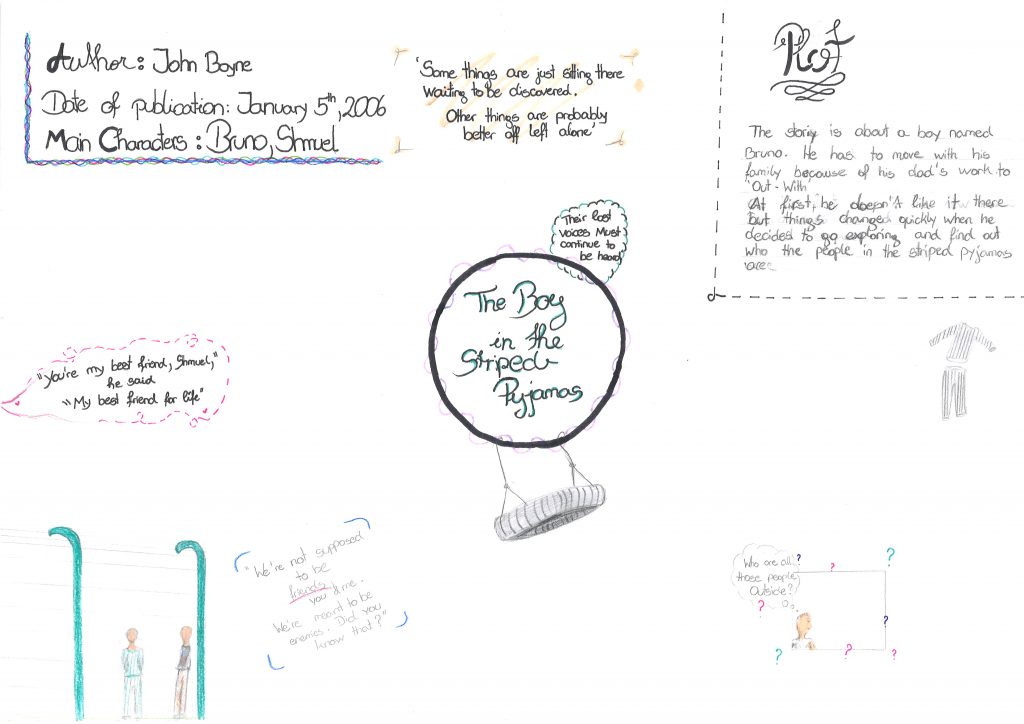 Author: John Boyne
Date of publication: January 5th, 2006
Main Characters: Bruno, Shmuel
'Some things are just sitting there
waiting to be discovered.
Other things are probably
better off left alone'
Plot
The story is about a boy named
Bruno. He has to move with his
family because of his dad's work to
"Out-With"
At first, he doesn't like it there
but things changed quickly when he
decides to go exploring and find out
who the people in the striped pyjamas
are.
Their lost
voices Must
continue to
be heard
The Boy
in the
Striped
Pyjamas
"You're my best friend, Shmuel,"
he said
"My best friend for life"
"We're not supposed
to be
friends
you & me.
We're meant to be
enemies. Did you
know that?"
Who are all
those people
Outside?
? ? ? ? ? ? ? ? ?